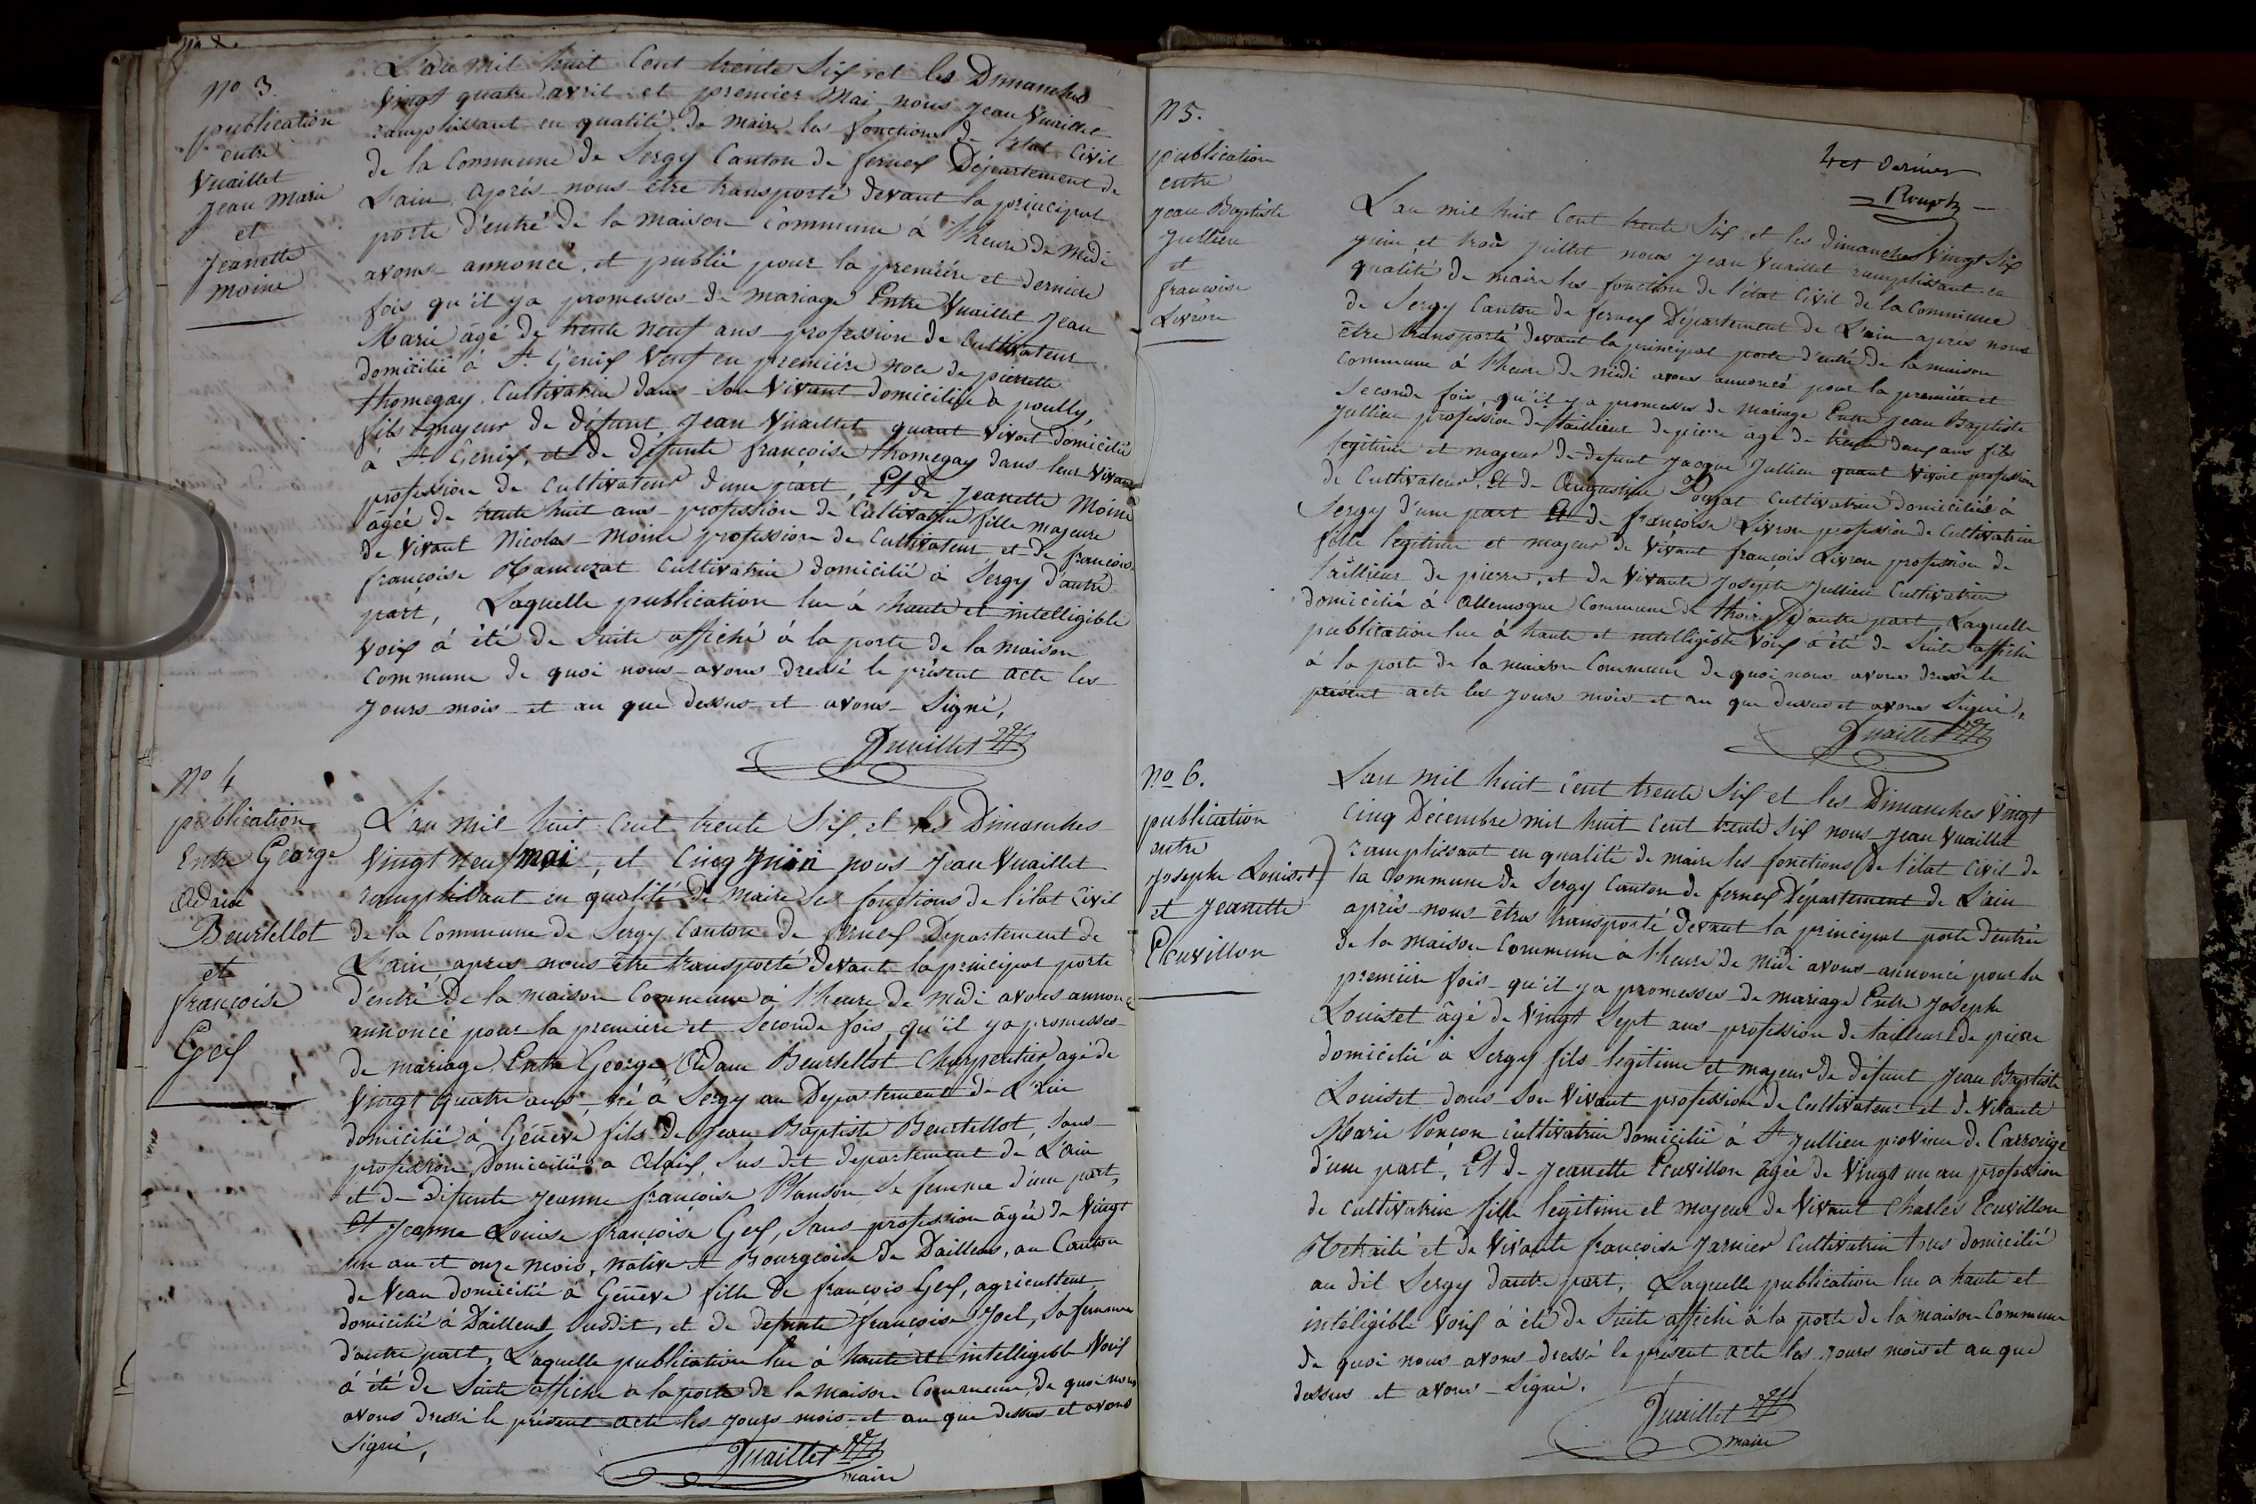 no 3.
publication
entre
Vuaillet
Jean Marie
et
Jeanette
moine
L'an mil huit Cent trente Six et les Dimanches
Vingt quatre avril et premier Mai nous Jean Vuaillet
ramplissant en qualité de maire les fonctions de l'état Civil
de la Commune de Sergy Canton de fernex Département de
L'ain après nous être transporté devant la principal
porte d'entré de la maison commune à l'heure de Midi
avons annoncé, et publié pour la première et derniere
fois qu'il ya promesses de mariage Entre Vuaillet Jean
Marie âgé de trente neuf ans profession de Cultivateur
domicilié à St Genix Veuf en première noce de pierrette
thomegay Cultivatrice dans Son Vivant domiciliée à pouilly,
fils majeur de défunt Jean Vuaillet quant vivoit domicilié
à St Genix, et de défunte françoise thomegay dans leur Vivant
profession de Cultivateur d'une part, Et de Jeanette Moine
âgée de trente huit ans profession de Cultivatrice fille majeure
de Vivant Nicolas Moine profession de Cultivateur et de françoise
françoise Cultivatrice domicilié à Sergy d'autre
part, Laquelle publication lue à haute et intelligible
voix à été de Suite affiché à la porte de la maison
Commune de quoi nous avons dressé le présent acte les
Jours mois et an que dessus et avons Signé,
Vuaillet
no 4
publication
Entre George
Adam
Beurtellot
et
françoise
Gex
L'an mil huit Cent trente Six, et les Dimanches
Vingt neuf mai, et Cinq Juin nous Jean Vuaillet
ramplissant en qualité de Maire les fonctions de l'état Civil
de la Commune de Sergy Canton de fernex Département de
L'ain, apres nous être transporté devant la principal porte
d'entré de la maison Commune à l'heure de Midi avons annoncé
annoncé pour la premiere et Seconde fois, qu'il ya promesses
de mariage Entre George Adam Beurtellot Charpentier agé de
Vingt quatre ans, né à Sergy au Département de L'ain
domicilié à Génève, fils de Jean Baptiste Beurtellot, Sans
profession, Domicilié a Sus dit departement de L'ain
et de défunte Jeanne françoise Planson Sa femme d'une part,
Et Jeanne Louise françoise Gex, Sans profession âgée de Vingt
un an et onze mois, native et Bourgeoise de Daillens, au Canton
de Veau domicilié à Génève fille de françois Gex, agriculteur,
domicilié à Daillens Susdit, et de defunte françoise Joel, Sa femme
d'autre part, L'aquelle publication lue à haute et intelligible Voix
à été de Suite affiché a la porte de la maison Commune, de quoi nous
avons dressé le présent acte les Jours mois et an que dessus et avons
Signé,
Vuaillet
maire
n 5.
publication
entre
Jean Baptiste
Jullien
et
françoise
Livron
L'an mil huit Cent trente Six, et les dimanches Vingt Six
juin et trois juillet nous Jean Vuaillet ramplissant en
qualité de maire les fonction de l'état Civil de la Commune
de Sergy Canton de fernex Département de L'ain apres nous
être transporté devant la principal porte d'entré de la maison
Commune à l'heure de Midi avons annoncé pour la première et
Seconde fois, qu'il ya promesses de mariage Entre Jean Baptiste
Jullien profession de taillieur de pierre âgé de trente deux ans fils
legitime et majeur de défunt Jacque Jullien quant Vivoit profession
de Cultivateur, Et de Augustine Cultivatrice domiciliée à
Sergy d'une part Et de françoise Livron profession de Cultivatrice
fille legitime et majeur de Vivant françois Livron profession de
taillieur de pierre, et de Vivante Josephe Jullien Cultivatrice
domicilié à Allemogne Commune de thoiry d'autre part, Laquelle
publication lue à haute et intelligible Voix à été de Suite affiché
à la porte de la maison Commune de quoi nous avons dressé le
présent acte les Jours mois et an que dessus et avons Signé,
Vuaillet
no 6.
publication
entre
Josephe Louiset
et Jeanette
Ecuvillon
L'an mil huit Cent trente Six et les Dimanches Vingt
Cinq Décembre mil huit Cent trente Six nous Jean Vuaillet
ramplissant en qualité de maire les fonctions de l'état Civil de
la Commune de Sergy Canton de fernex Département de L'ain
après nous êtres transporté devant la principal porte d'entrée
de la maison Commune à l'heure de Midi avons annoncé pour la
premiére fois qu'il ya promesses de mariage Entre Josephe
Louiset âgé de Vingt Sept ans profession de tailleur de pierre
domicilié à Sergy fils légitime et majeur de défunt Jean Baptiste
Louiset dans Son Vivant profession de Cultivateur et de Vivante
Marie Ponçon cultivatrice domicilié à St Jullien province de Carrouge
d'une part, Et de Jeanette Ecuvillon âgée de Vingt un an profession
de cultivatrice fille légitime et majeur de Vivant Charles Ecuvillon
Retraité et de Vivante françoise Jarnier Cultivatrice tous domicilié
au dit Sergy d'autre part, Laquelle publication lue a haute et
intéligible Voix à été de Suite affiché à la porte de la maison Commune
de quoi nous avons dressé le présent acte les Jours mois et an que
dessus et avons Signé.
Vuaillet
maire